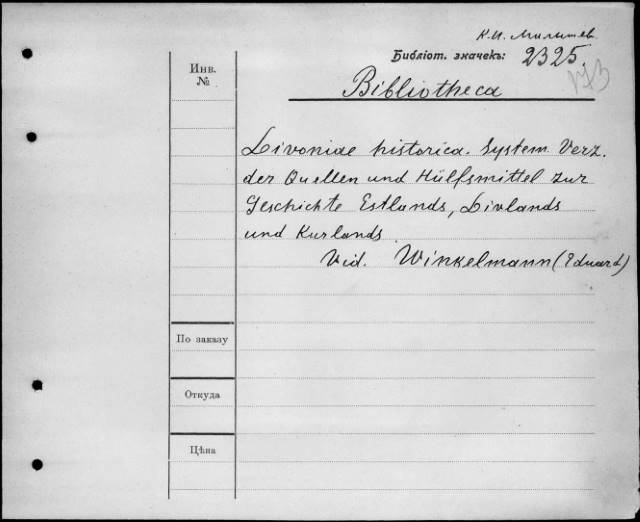 К.И.
Библіот. значекъ: 2325.
173
Инв.
№
Bibliotheca
Livoniae historica. System. Verz.
der Quellen und Hülfsmittel zur
Geschichte Estlands, Livlands
und Kurlands
Vid. Winkelmann (Eduard)
По заказу
Откуда
Цѣна